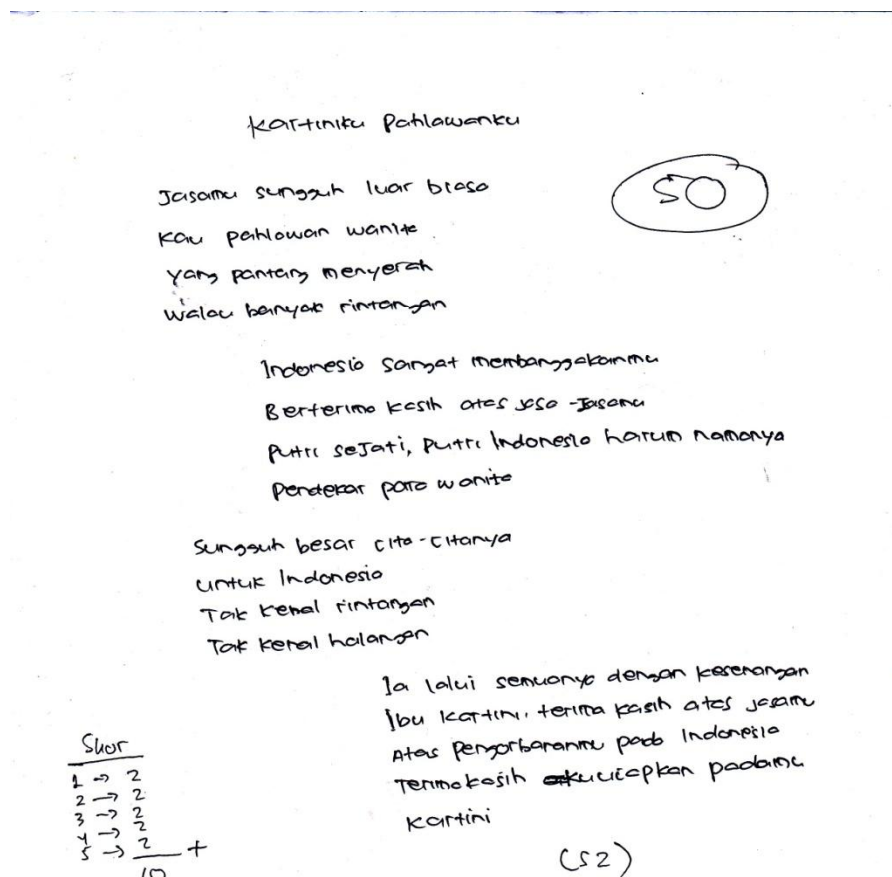 Kartiniku Pahlawanku
50
Jasamu sungguh luar biasa
Kau pahlawan wanita
Yang pantang menyerah
Walau banyak rintangan
Indonesia sangat membanggakanmu
Berterima kasih atas jasa-Jasamu
Putri seJati, Putri Indonesia harum namanya
Pendekar para wanita
Sungguh besar cita-citanya
untuk Indonesia
Tak kenal rintangan
Tak kenal halangan
Ia lalui semuanya dengan kesenangan
Ibu Kartini, terima kasih atas jasamu
Atas pengorbananmu pada Indonesia
Terimakasih kuucapkan padamu
Kartini
Skor
1 → 2
2 → 2
3 → 2
4 → 2
5 → 2 +
10
(S2)